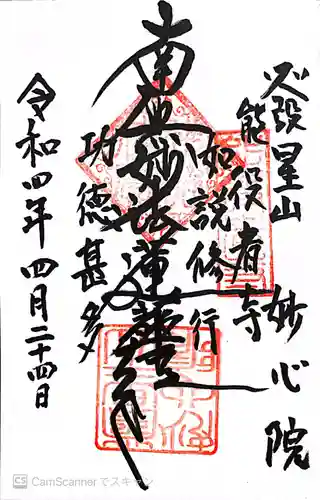 必設星山 妙心院
能役者寺
如説修行
南無妙法蓮華経
功徳甚多
令和四年四月二十四日
CS CamScanner でスキャン